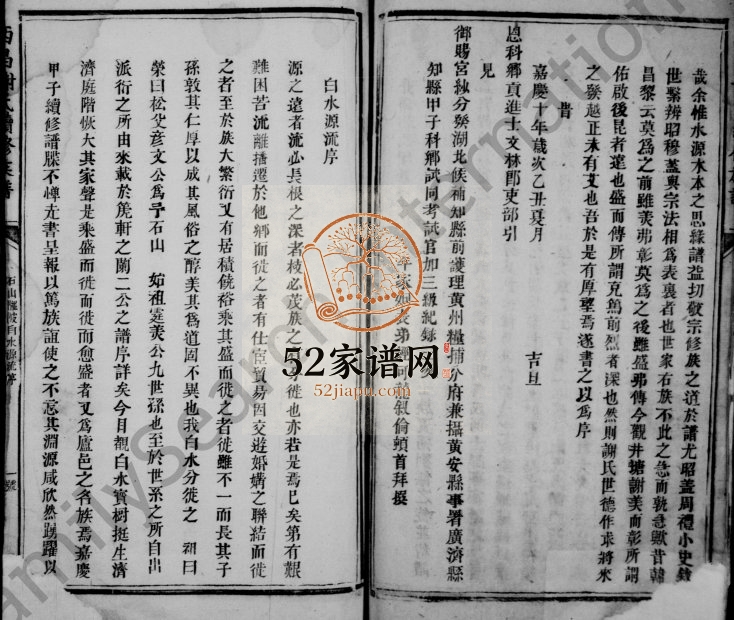 哉余惟水源木本之思緣譜益切敬宗修族之道於譜尤昭蓋周禮小史
世繫辨昭穆蓋與宗法相爲表裏者也世家右族不此之急而孰急歟昔韓
昌黎云莫爲之前雖美弗彰莫爲之後雖盛弗傳今觀井塘謝美而彰所謂
佑啟後昆者遠也盛而傳所謂克篤前烈者深也然則謝氏世德作求將來
之發越正未有艾也吾於是有厚望焉遂書之以爲序
昔
嘉慶十年歲次乙丑夏月 吉旦
恩科鄉貢進士文林郎吏部引
見
御賜宮紗分發湖北候補知縣前護理黃州糧捕分府兼攝黃安縣事署廣濟縣
知縣甲子科鄉試同考試官加三級紀錄
叙倫頓首拜撰
白水源流序
源之遠者流必長根之深者枝必茂族之徙也亦若是焉巳矣第有艱
難困苦流離播遷於他鄉而徙之者有仕宦貿易因交遊婚媾之聯結而徙
之者至於族大繁衍又有居積饒裕乘其盛而徙之者徙雖不一而長其子
孫敦其仁厚以成其風俗之醇美其爲道固不異也我白水分徙之 祖曰
榮曰松父彥文公爲予石山 始祖霆美公九世孫也至於世系之所自出
派衍之所由來載於篪軒之蘭二公之譜序詳矣今目覩白水寶樹挺生濟
濟庭階恢大其家聲是乘盛而徙而徙而愈盛者又爲廬邑之名族焉嘉慶
甲子續修譜牒不憚走書呈報以篤族誼使之不忘其淵源咸欣然踴躍以
石山
白水源流序
一
52家谱网
52jiapu.com
FamilySearch International